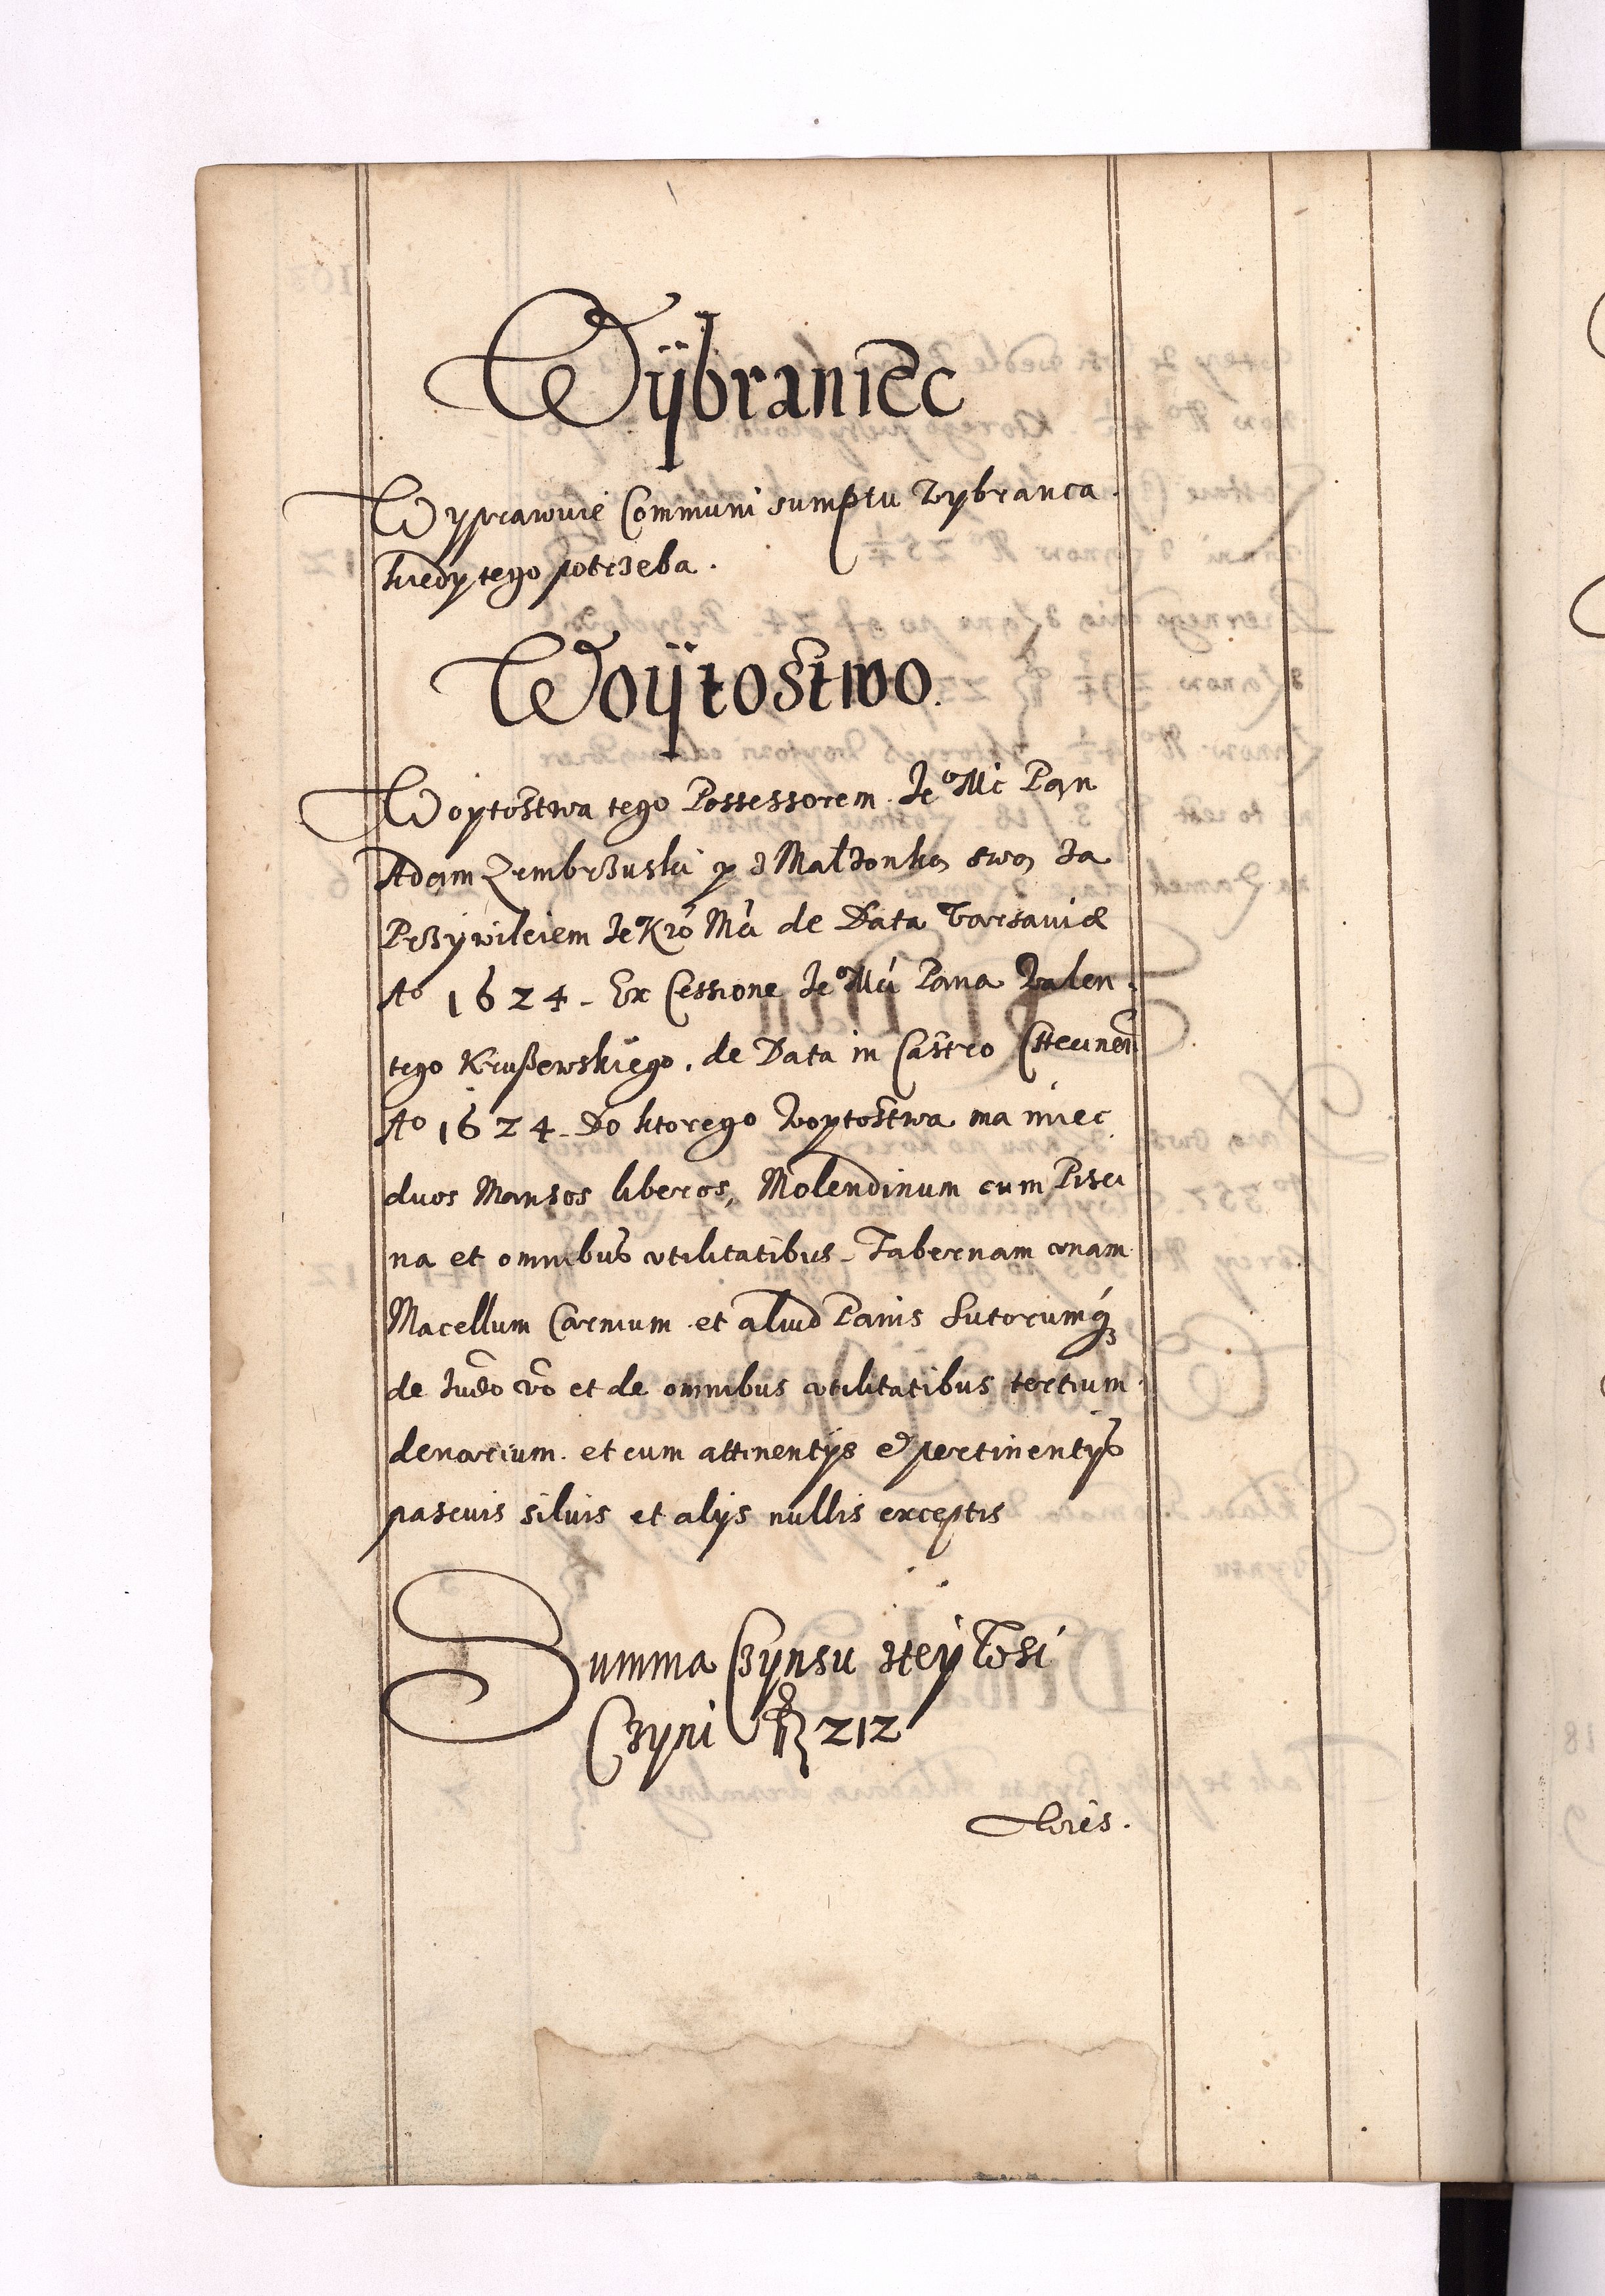 Wÿbraniec
Wyprawuie Communi sumptu wybranca
kiedy tego potrzeba.
Woÿtostwo.
Woytostwa tego Possessorem Ie° Mć Pan
Adam Zembrzuski y z Małzonką swą za
Przywileiem Ie° Kró Mći de Data Varsaviæ
A° 1624 - Ex Cessione Ie° Mći Pana Walen
tego Krußewskiego. de Data in Castro
A° 1624 - Do ktorego woytostwa ma miec
duos Mansos liberos, Molendinum cum Pisci
na et omnibus vtilitatibus - Tabernam vnam
Macellum Carnium et aliud Panis Sutorumq́3
de Iudo vo et de omnibus vtilitatibus tertium
denarium. et cum attinentÿs & pertinentÿs
pascuis siluis et alÿs nullis exceptis
Summa Czynsu zteÿ Wsi
Czyni fl 212
Wies.